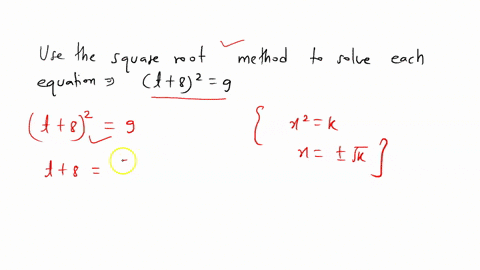 Use the square root method to solve each
equation ⇒ (t+8)² = 9
(t+8)² = 9
t+8 =
{ x² = k
x = ± √k }